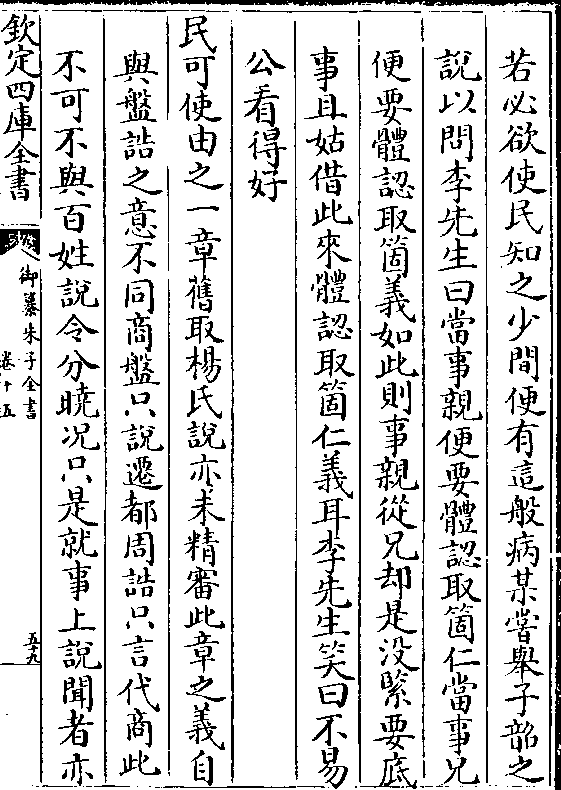 若必欲使民知之少間便有這般病某嘗舉子韶之
說以問李先生曰當事親便要體認取箇仁當事兄
便要體認取箇義如此則事親從兄却是没緊要底
事且姑借此來體認取箇仁義耳李先生笑曰不易
公看得好
民可使由之一章舊取楊氏說亦未精審此章之義自
與盤誥之意不同商盤只說遷都周誥只言代商此
不可不與百姓說令分曉况只是就事上說聞者亦
欽定四庫全書
御纂朱子全書
卷十五
五十九